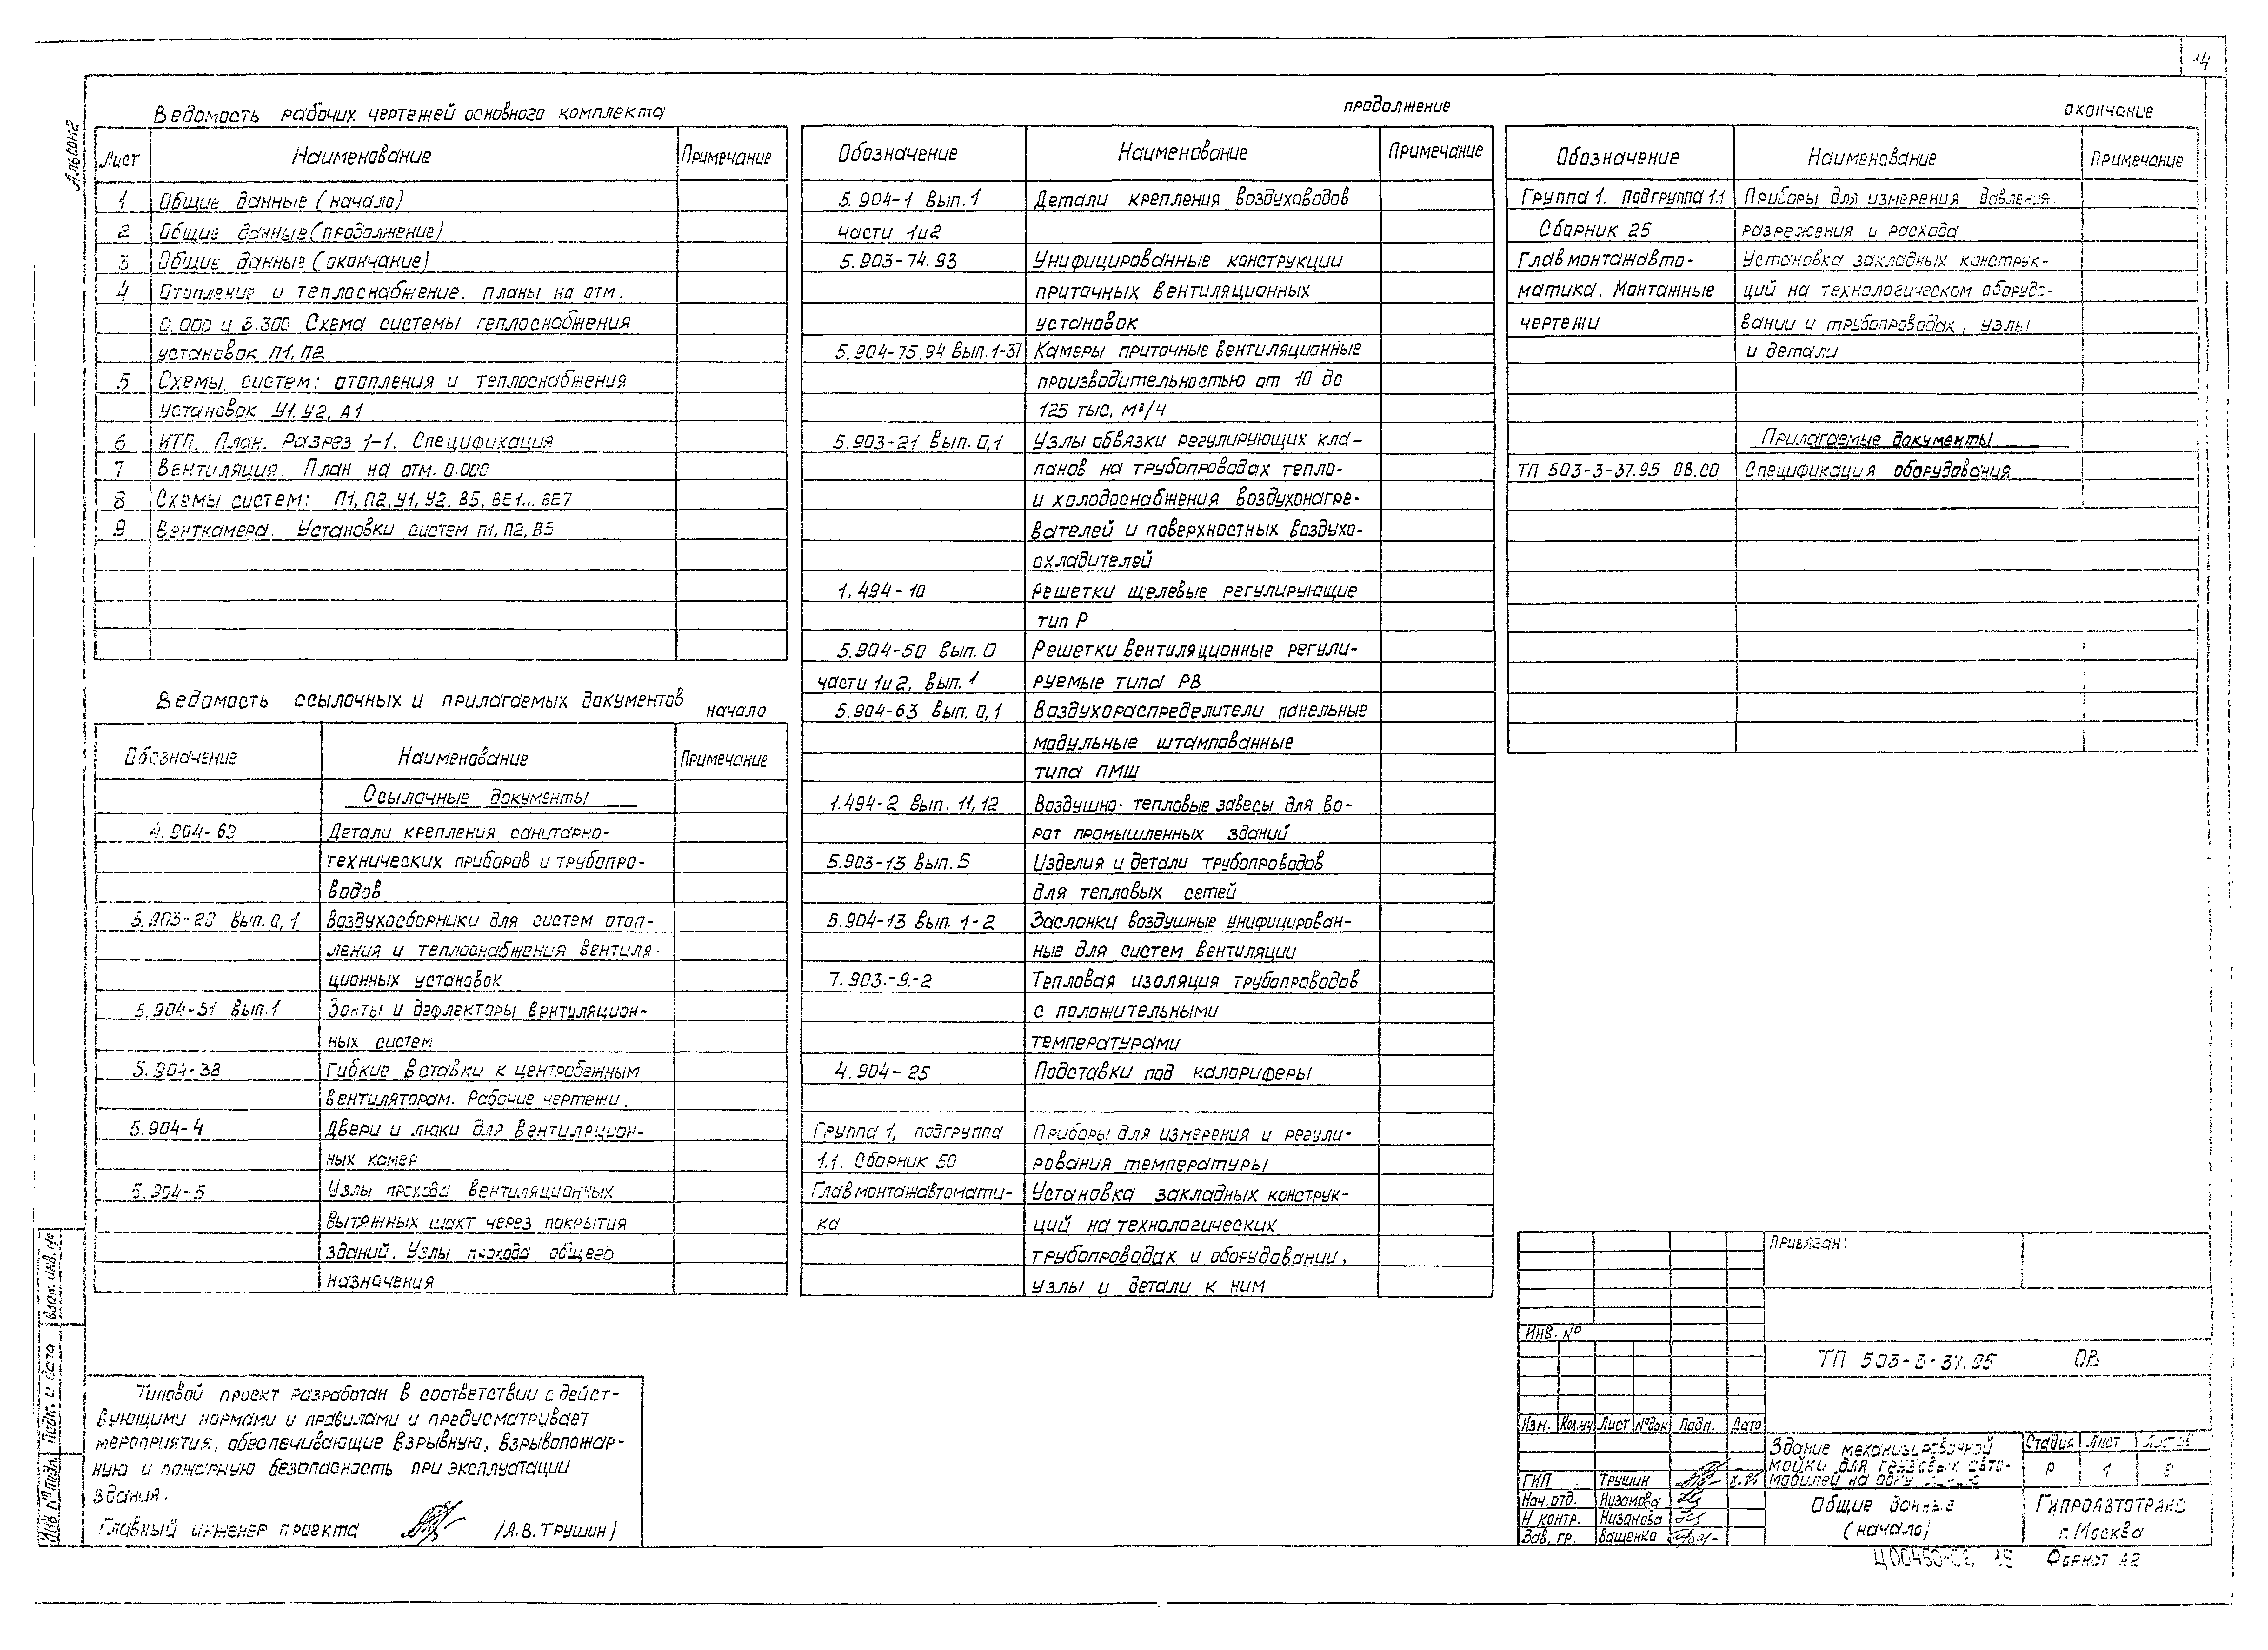 14
Альбом 2
Ведомость рабочих чертежей основного комплекта
Лист Наименование Примечание
1 Общие данные (начало)
2 Общие данные (продолжение)
3 Общие данные (окончание)
4 Отопление и теплоснабжение. Планы на отм.
0.000 и 3.300 Схема системы теплоснабжения
установок П1, П2
5 Схемы систем: отопления и теплоснабжения
установок У1, У2, А1
6 ИТП. План. Разрез 1-1. Спецификация
7 Вентиляция. План на отм. 0.000
8 Схемы систем: П1, П2, У1, У2, В5, ВЕ1.. ВЕ7
9 Венткамера. Установки систем П1, П2, В5
Ведомость ссылочных и прилагаемых документов
начало
Обозначение Наименование Примечание
Ссылочные документы
4.904-69 Детали крепления санитарно-
технических приборов и трубопро-
водов
5.903-20 Вып. 0,1 Воздухосборники для систем отоп-
ления и теплоснабжения вентиля-
ционных установок
5.904-51 Вып. 1 Зонты и дефлекторы вентиляцион-
ных систем
5.904-38 Гибкие вставки к центробежным
вентиляторам. Рабочие чертежи.
5.904-4 Двери и люки для вентиляцион-
ных камер
5.904-5 Узлы прохода вентиляционных
вытяжных шахт через покрытия
зданий. Узлы прохода общего
назначения
продолжение
Обозначение Наименование Примечание
5.904-1 Вып. 1 Детали крепления воздуховодов
части 1и2
5.903-74.93 Унифицированные конструкции
приточных вентиляционных
установок
5.904-75.94 Вып. 1-37 Камеры приточные вентиляционные
производительностью от 10 до
125 тыс. м³/ч
5.903-21 Вып. 0,1 Узлы обвязки регулирующих кла-
панов на трубопроводах тепло-
и холодоснабжения воздухонагре-
вателей и поверхностных воздухо-
охладителей
1.494-10 Решетки щелевые регулирующие
тип Р
5.904-50 Вып. 0 Решетки вентиляционные регули-
части 1и2, Вып. 1 руемые типа РВ
5.904-63 Вып. 0,1 Воздухораспределители панельные
модульные штампованные
типа ПМШ
1.494-2 Вып. 11,12 Воздушно-тепловые завесы для во-
рот промышленных зданий
5.903-13 Вып. 5 Изделия и детали трубопроводов
для тепловых сетей
5.904-13 Вып. 1-2 Заслонки воздушные унифицирован-
ные для систем вентиляции
7.903.-9.-2 Тепловая изоляция трубопроводов
с положительными
температурами
4.904-25 Подставки под калориферы
Группа 1, подгруппа Приборы для измерения и регули-
1.1. Сборник 50 рования температуры
Главмонтажавтомати- Установка закладных конструк-
ка ций на технологических
трубопроводах и оборудовании,
узлы и детали к ним
окончание
Обозначение Наименование Примечание
Группа 1. Подгруппа 1.1 Приборы для измерения давления,
Сборник 25 разрежения и расхода
Главмонтажавто- Установка закладных конструк-
матика. Монтажные ций на технологическом оборудо-
чертежи вании и трубопроводах, узлы
и детали
Прилагаемые документы
ТП 503-3-37.95 ОВ.СО Спецификация оборудования
Типовой проект разработан в соответствии с дейст-
вующими нормами и правилами и предусматривает
мероприятия, обеспечивающие взрывную, взрывопожар-
ную и пожарную безопасность при эксплуатации
здания.
Главный инженер проекта /А.В. Трушин/
Взам. инв. №
Подп. и дата
Инв. № подл.
Привязан:
Инв. №
ТП 503-3-37.95 ОВ
Изм. Кол.уч Лист №док Подп. Дата
Здание механизированной
мойки для грузовых авто-
мобилей на одну
Стадия Лист Листов
Р 1 9
ГИП Трушин
Нач. отд. Низамова
Н контр. Низамова
Зав. гр. Ващенко
Общие данные
(начало)
Гипроавтотранс
г. Москва
Ц00450-02, 15 Формат А2